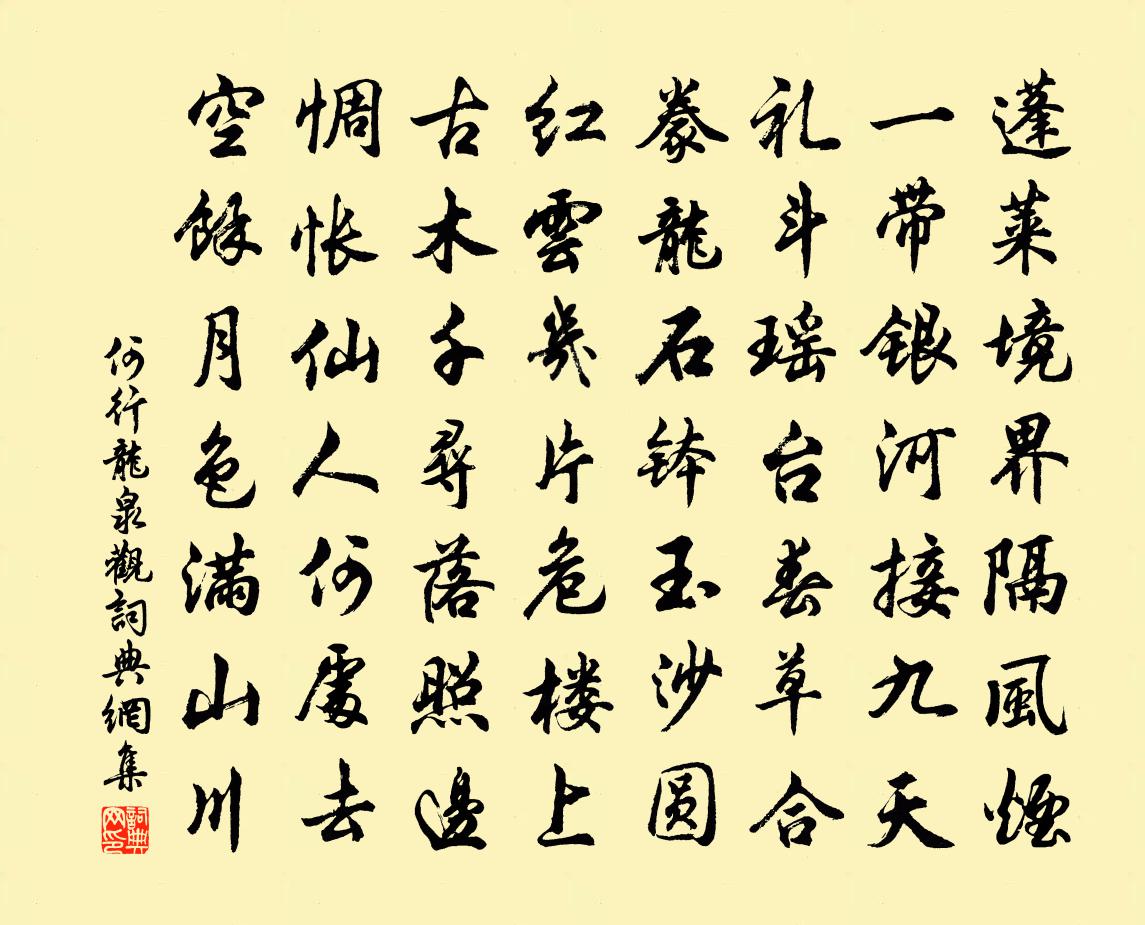 蓬莱境界隔風煙
一带银河接九天
礼斗瑶台春草合
豢龍石钵玉沙圆
红雲幾片危楼上
古木千尋落照邊
惆怅仙人何處去
空餘月色满山川
何行龍泉觀詞典網集
詞典網印